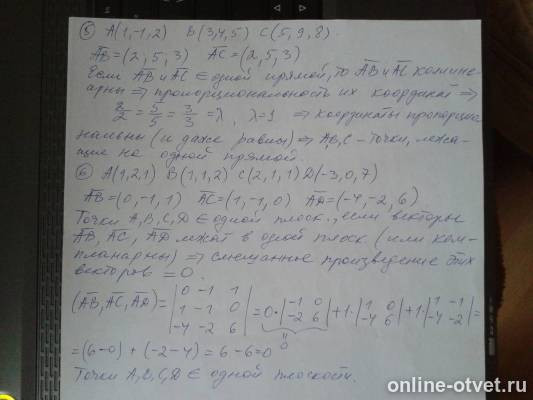 ⑤ A(1,-1,2) B(3,4,5) C(5,9,8).
AB=(2,5,3) AC=(2,5,3)
Если AB и AC ∈ одной прямой, то AB и AC колине-
арны ⇒ пропорциональность их координат ⇒
2/2 = 5/5 = 3/3 = λ, λ=1 ⇒ координаты пропорцио
нальны (и даже равны) ⇒ A,B,C - точки, лежа-
щие на одной прямой.
⑥ A(1,2,1) B(1,1,2) C(2,1,1) D(-3,0,7)
AB=(0,-1,1) AC=(1,-1,0) AD=(-4,-2,6)
Точки A,B,C,D ∈ одной плоск., если векторы
AB, AC, AD лежат в одной плоск (или ком-
планарны) ⇒ смешанное произведение этих
векторов = 0.
(AB,AC,AD)= |0 -1 1; 1 -1 0; -4 -2 6| = 0·|-1 0; -2 6| +1·|1 0; -4 6| +1·|1 -1; -4 -2| =
"
0
= (6-0) + (-2-4) = 6-6=0
Точки A,B,C,D ∈ одной плоскости.
online-otvet.ru